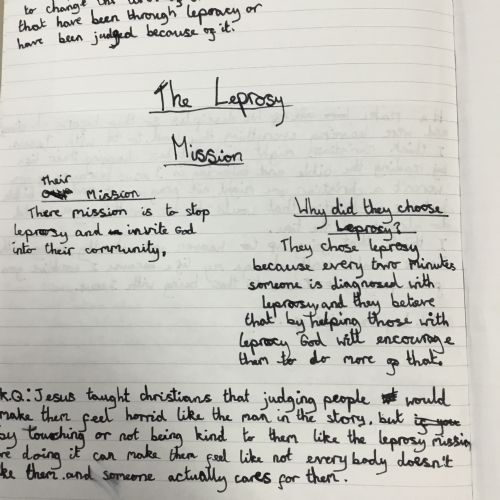 to change the
that have been through lepracy or
have been judged because of it.
The Leprosy
Mission
Their
Mission
There mission is to stop
leprosy and invite God
into their community.
Why did they choose
Leprosy?
They chose leprosy
because every two minutes
someone is diagnosed with
leproosy, and they beleve
that by helping those with
leprocy God will encourage
them to do more go that.
k.Q: Jesus taught christians that judging people would
make them feel horrid like the man in the story, but
by touching or not being kind to them like the leprosy mission
are doing it can make them feel like not every body doesn't
ke them. and someone actually cares for them.